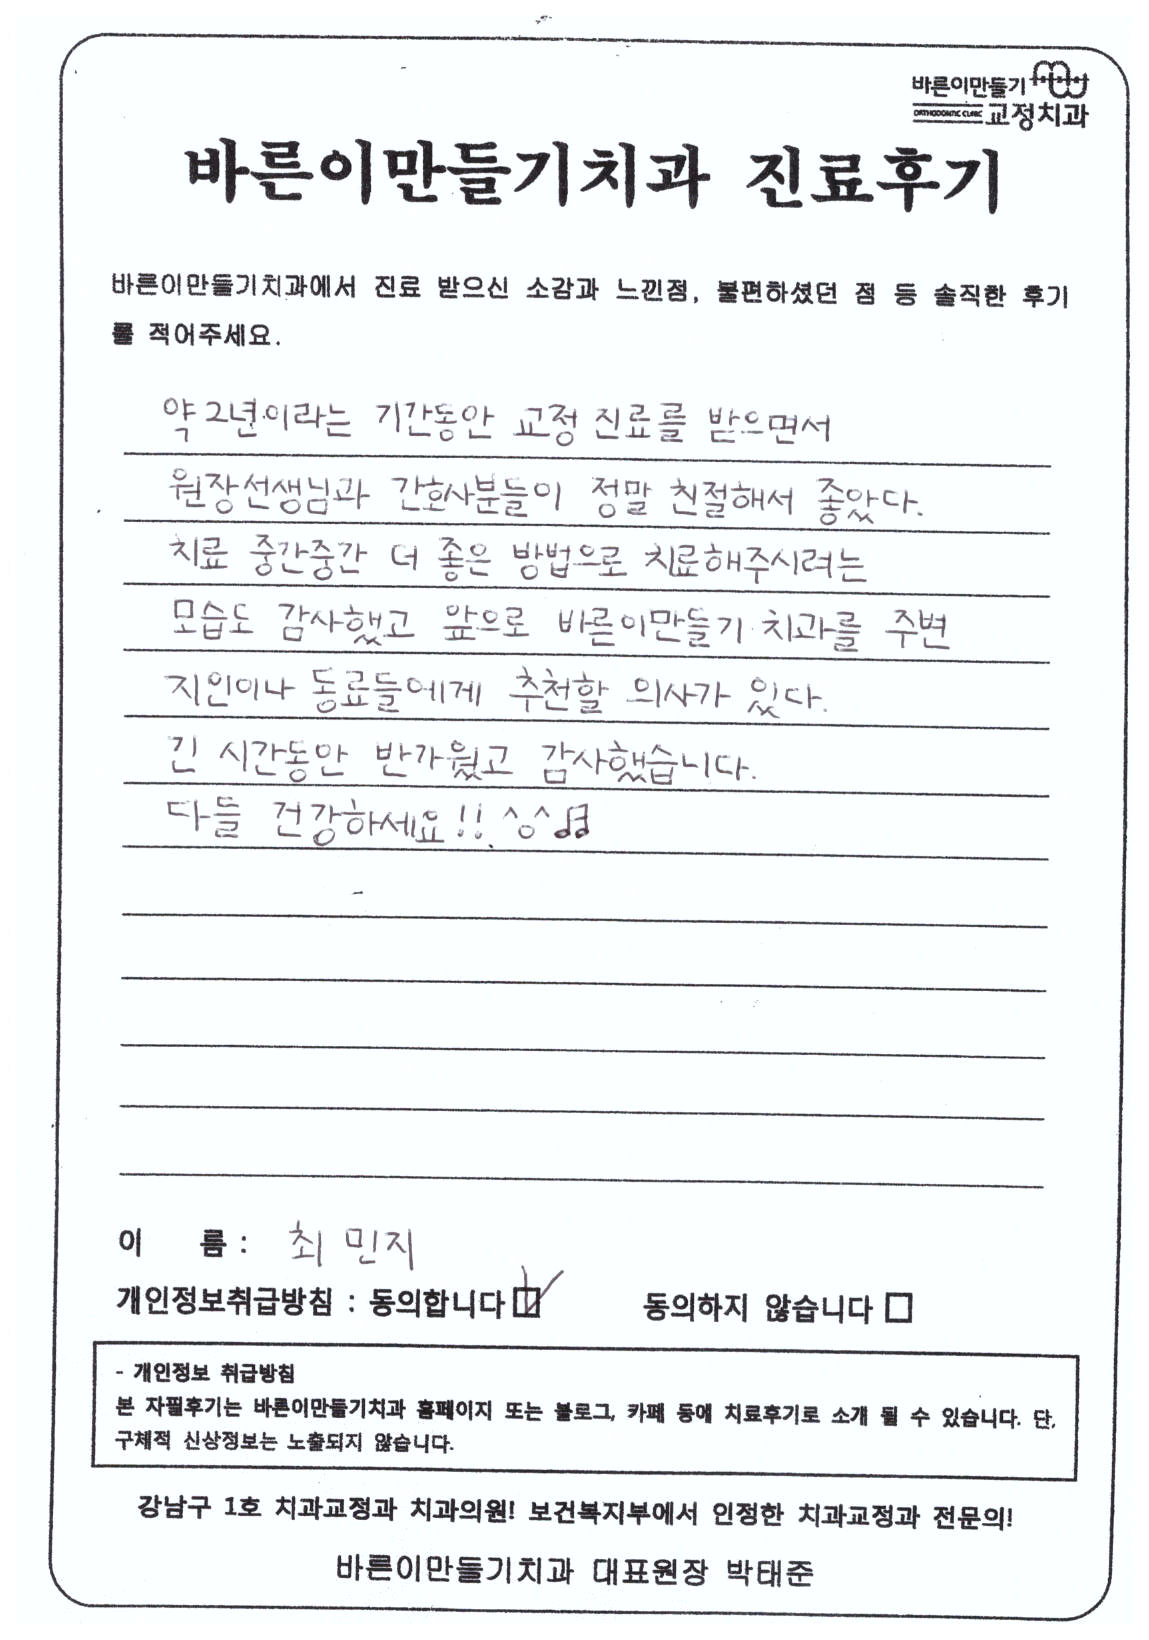 바른이만들기
ORTHODONTIC CLINIC 교정치과
바른이만들기치과 진료후기
바른이만들기치과에서 진료 받으신 소감과 느낀점, 불편하셨던 점 등 솔직한 후기
를 적어주세요.
약 2년이라는 기간동안 교정 진료를 받으면서
원장선생님과 간호사분들이 정말 친절해서 좋았다.
치료 중간중간 더 좋은 방법으로 치료해주시려는
모습도 감사했고 앞으로 바른이만들기 치과를 주변
지인이나 동료들에게 추천할 의사가 있다.
긴 시간동안 반가웠고 감사했습니다.
다들 건강하세요!! ^o^♫
이 름 : 최민지
개인정보취급방침 : 동의합니다 ☑ 동의하지 않습니다 □
- 개인정보 취급방침
본 자필후기는 바른이만들기치과 홈페이지 또는 블로그, 카페 등에 치료후기로 소개 될 수 있습니다. 단,
구체적 신상정보는 노출되지 않습니다.
강남구 1호 치과교정과 치과의원! 보건복지부에서 인정한 치과교정과 전문의!
바른이만들기치과 대표원장 박태준